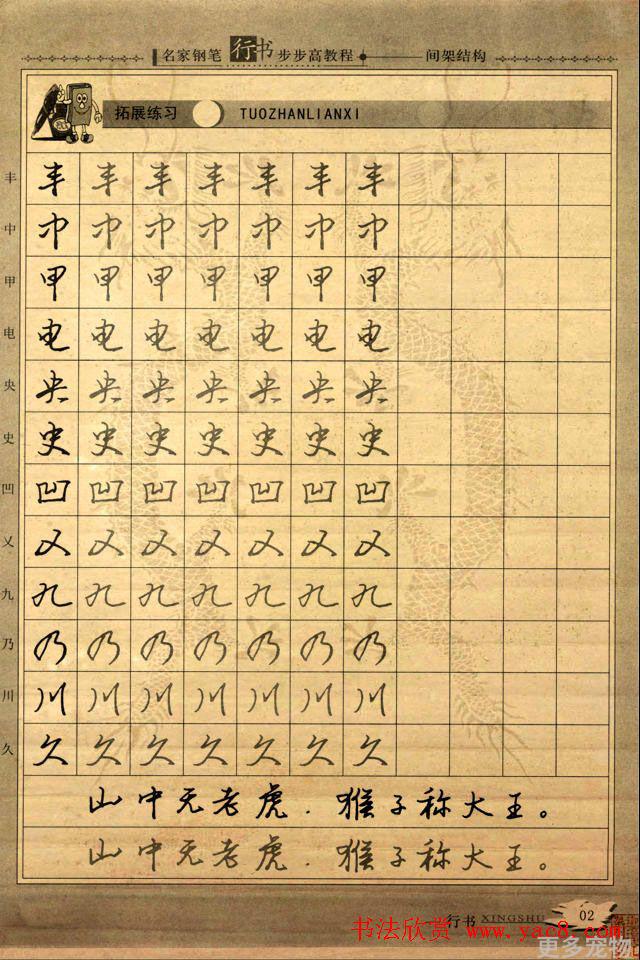 名家钢笔 行书 步步高教程 间架结构
拓展练习 TUOZHANLIANXI
丰 丰 丰 丰 丰 丰 丰 丰
中 中 中 中 中 中 中 中
甲 甲 甲 甲 甲 甲 甲 甲
电 电 电 电 电 电 电 电
央 央 央 央 央 央 央 央
史 史 史 史 史 史 史 史
凹 凹 凹 凹 凹 凹 凹 凹
乂 乂 乂 乂 乂 乂 乂 乂
九 九 九 九 九 九 九 九
乃 乃 乃 乃 乃 乃 乃 乃
川 川 川 川 川 川 川 川
久 久 久 久 久 久 久 久
山中无老虎.猴子称大王。
山中无老虎.猴子称大王。
行书 XINGSHU 02
书法欣赏 www.yac8.com
更多宠物